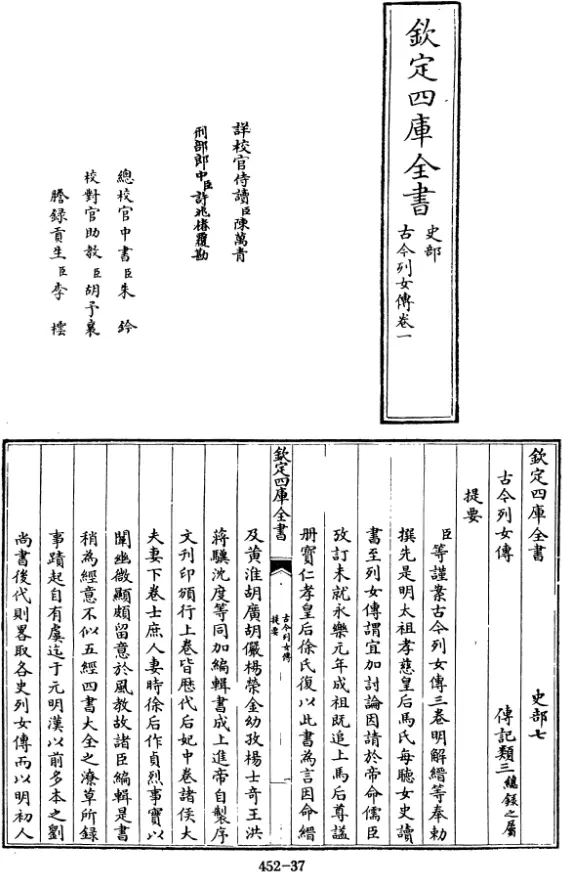 欽定四庫全書
史部
古今列女傳卷一
詳校官侍讀臣陳萬青
刑部郎中臣許兆椿覆勘
總校官中書臣朱鈐
校對官助教臣胡予襄
謄錄貢生臣李檽
欽定四庫全書
史部七
古今列女傳
傳記類三總錄之屬
提要
臣等謹案古今列女傳三卷明解縉等奉勅
撰先是明太祖孝慈皇后馬氏每聽女史讀
書至列女傳謂宜加討論因請於帝命儒臣
攷訂未就永樂元年成祖既追上馬后尊諡
冊寶仁孝皇后徐氏復以此書為言因命縉
欽定四庫全書
古今列女傳
提要
及黃淮胡廣胡儼楊榮金幼孜楊士奇王洪
蔣驥沈度等同加編輯書成上進帝自製序
文刊印頒行上卷皆歴代后妃中卷諸侯大
夫妻下卷士庶人妻時徐后作貞烈事實以
闡幽微顯頗留意於風教故諸臣編輯是書
稍為經意不似五經四書大全之潦草所錄
事蹟起自有虞迄于元明漢以前多本之劉
尚書後代則畧取各史列女傳而以明初人
452-37